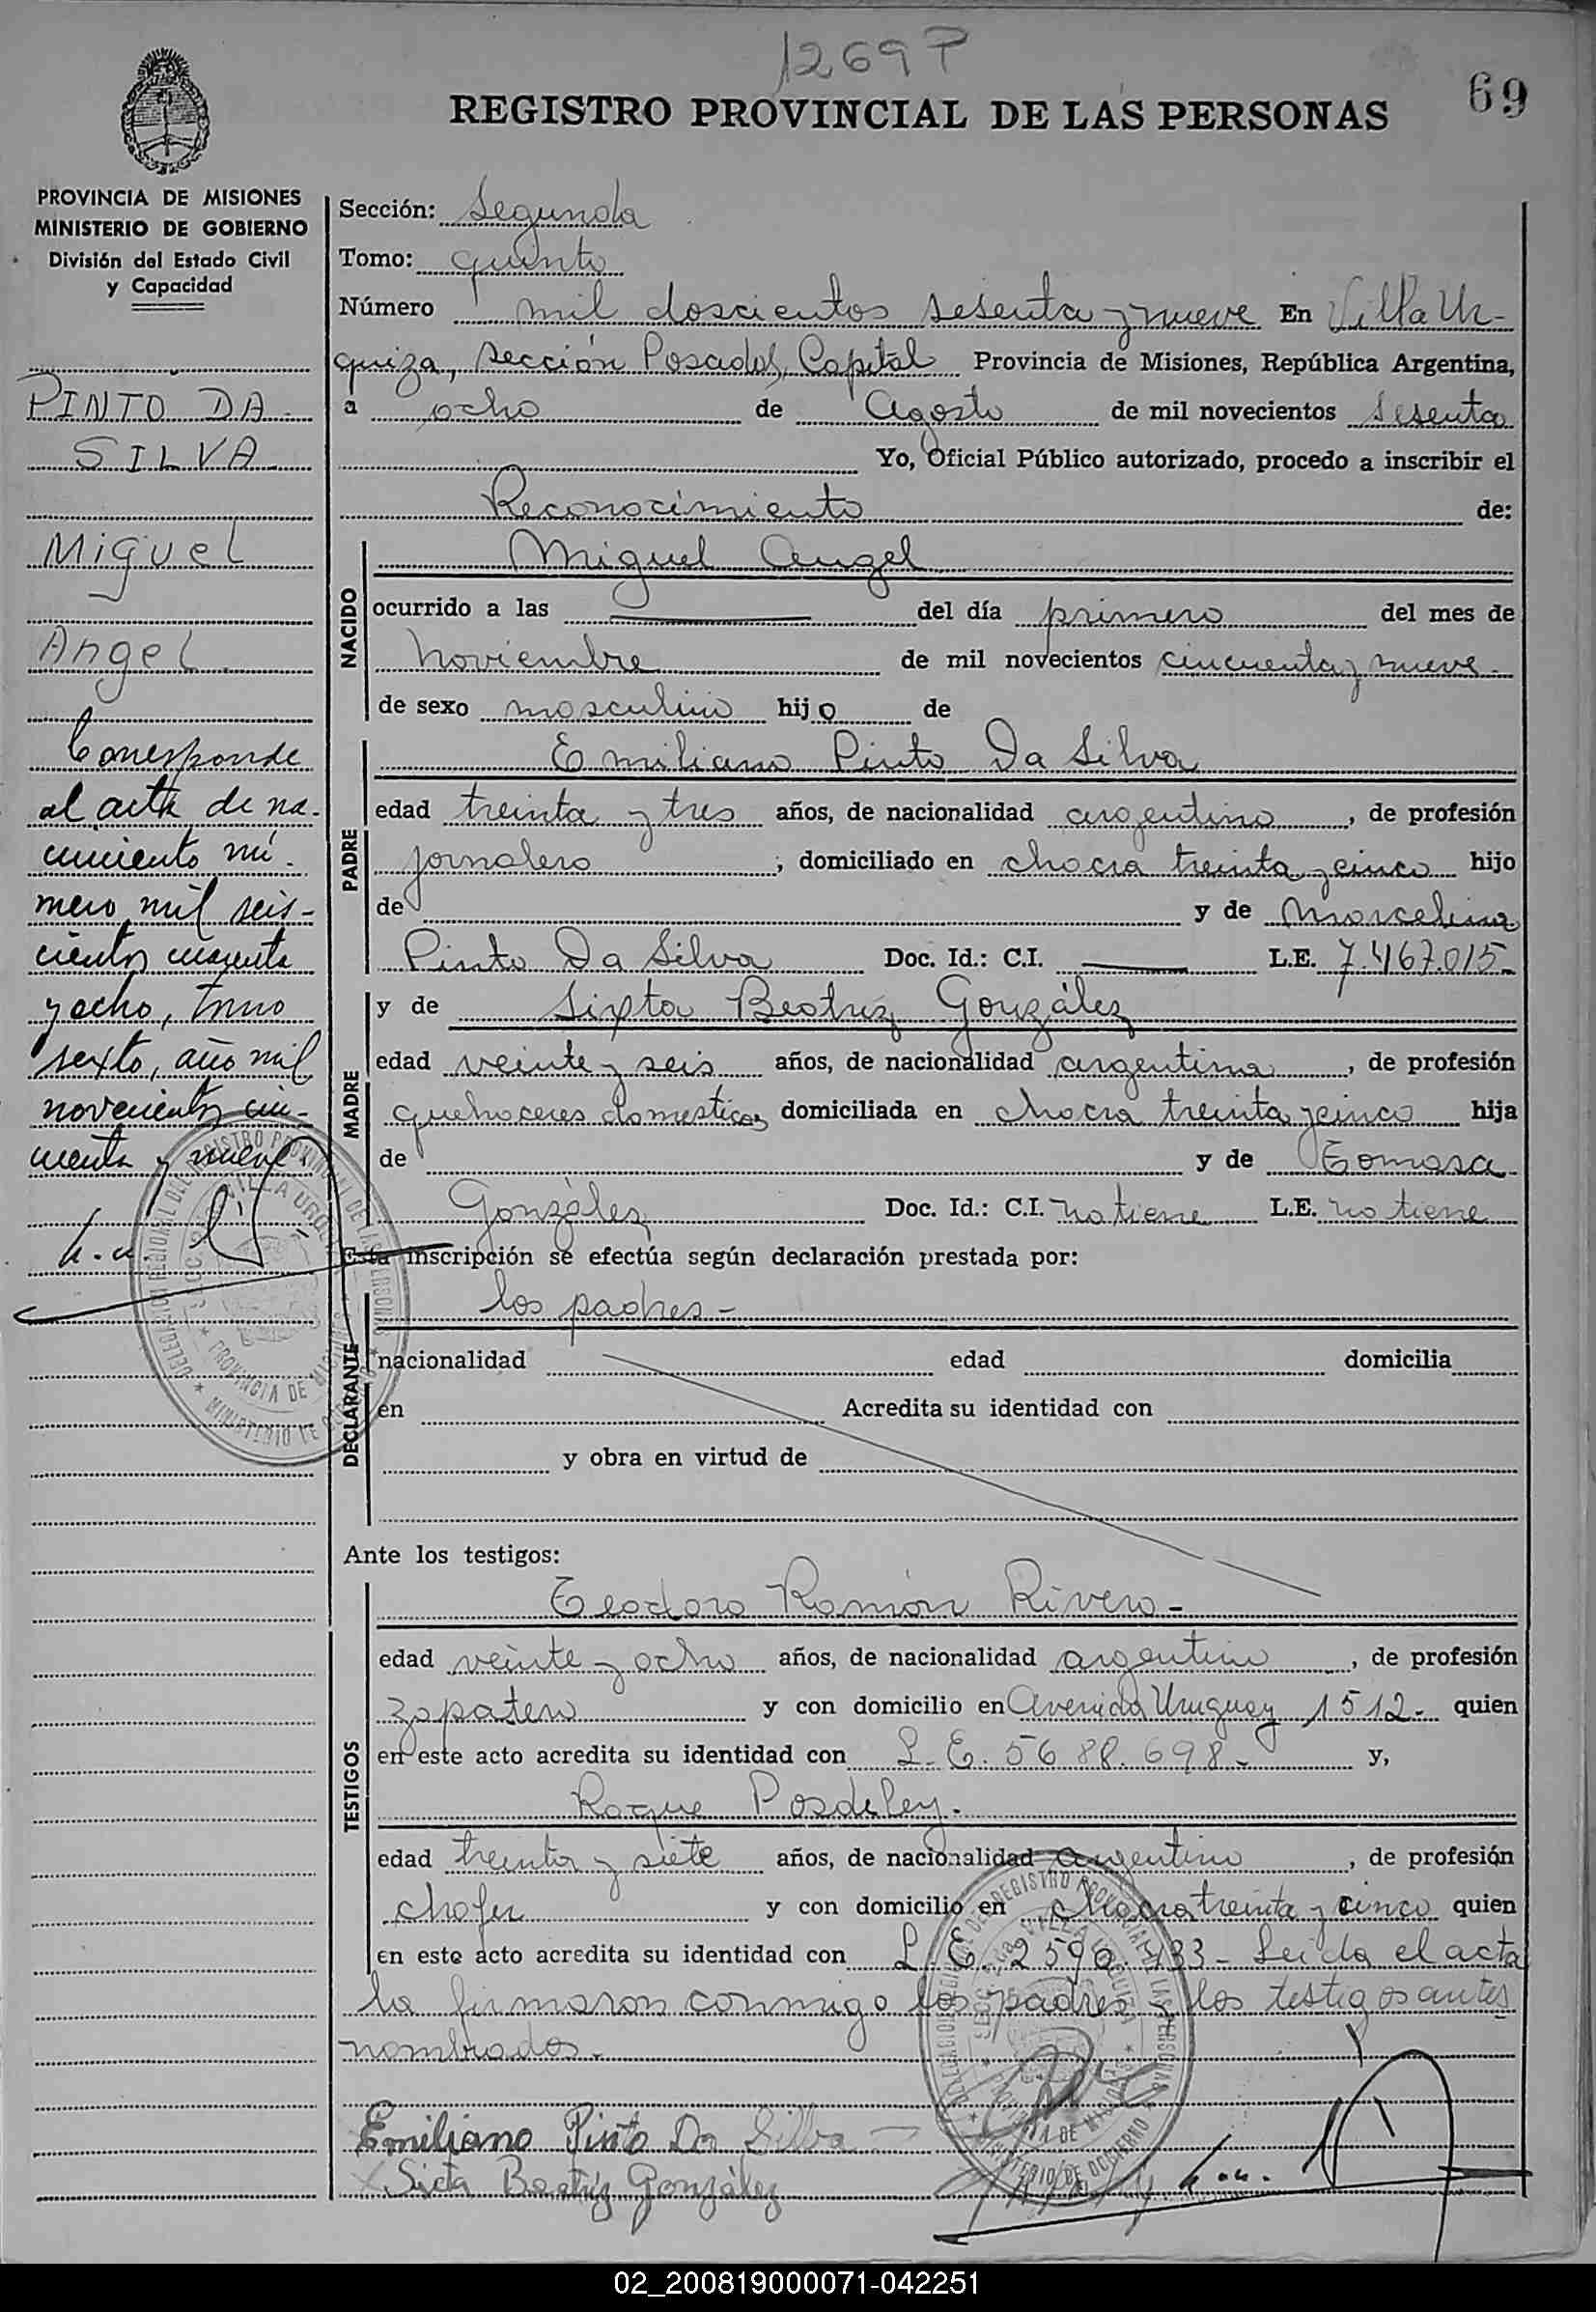 1269 P
69
REGISTRO PROVINCIAL DE LAS PERSONAS
PROVINCIA DE MISIONES
MINISTERIO DE GOBIERNO
División del Estado Civil
y Capacidad
PINTO DA
SILVA
Miguel
Angel
Corresponde
al acta de na-
cimiento nú-
mero mil seis-
cientos cuarenta
y ocho, tomo
sexto, año mil
novecientos cin-
cuenta y nueve
Sección: Segunda
Tomo: quinto
Número mil doscientos sesenta y nueve En Villa Ur-
quiza, sección Posadas, Capital Provincia de Misiones, República Argentina,
a ocho de Agosto de mil novecientos sesenta
Yo, Oficial Público autorizado, procedo a inscribir el
Reconocimiento de:
NACIDO
Miguel Angel
ocurrido a las del día primero del mes de
noviembre de mil novecientos cincuenta y nueve-
de sexo masculino hijo de
PADRE
Emiliano Pinto Da Silva
edad treinta y tres años, de nacionalidad argentino, de profesión
jornalero; domiciliado en chacra treinta y cinco hijo
de y de Marcelina
Pinto Da Silva Doc. Id.: C.I. L.E. 7.467.015-
MADRE
y de Sixta Beatriz González
edad veinte y seis años, de nacionalidad argentina, de profesión
quehaceres domesticos domiciliada en chacra treinta y cinco hija
de y de Tomasa
González Doc. Id.: C.I. no tiene L.E. no tiene
Esta inscripción se efectúa según declaración prestada por:
DECLARANTE
los padres-
nacionalidad edad domicilia
en Acredita su identidad con
y obra en virtud de
Ante los testigos:
TESTIGOS
Teodoro Ramón Rivero-
edad veinte y ocho años, de nacionalidad argentino, de profesión
zapatero y con domicilio en Avenida Uruguay 1512- quien
en este acto acredita su identidad con L.E. 5688.698- y,
Roque Posdeley.
edad treinta y siete años, de nacionalidad argentino, de profesión
chofer y con domicilio en chacra treinta y cinco quien
en este acto acredita su identidad con L.E. 2590.733- Leida el acta
la firmaron conmigo los padres y los testigos antes
nombrados.
Emiliano Pinto Da Silba
Sicta Beatriz González
02_200819000071-042251